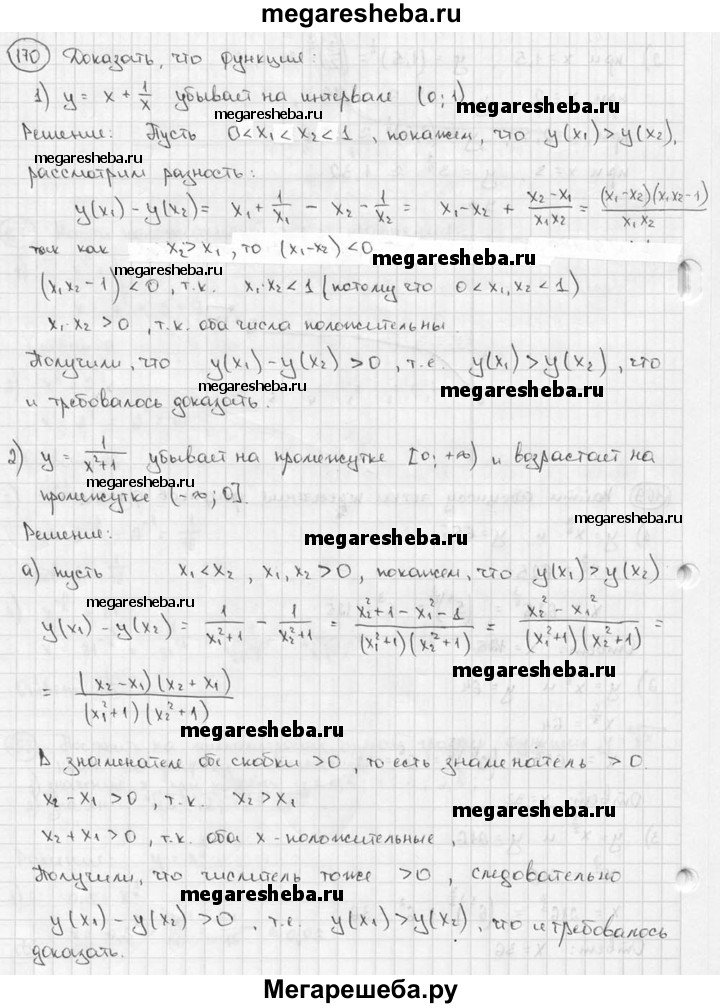 megaresheba.ru
170 Доказать, что функция:
1) y = x + 1/x убывает на интервале (0; 1)
megaresheba.ru
Решение: Пусть 0 < x₁ < x₂ < 1, покажем, что y(x₁) > y(x₂),
megaresheba.ru
рассмотрим разность:
y(x₁) - y(x₂) = x₁ + 1/x₁ - x₂ - 1/x₂ = x₁ - x₂ + (x₂ - x₁)/(x₁x₂) = (x₁ - x₂)(x₁x₂ - 1)/(x₁x₂)
так как x₂ > x₁, то (x₁ - x₂) < 0
megaresheba.ru megaresheba.ru
(x₁x₂ - 1) < 0, т.к. x₁·x₂ < 1 (потому что 0 < x₁, x₂ < 1)
x₁·x₂ > 0, т.к. оба числа положительны.
Получили, что y(x₁) - y(x₂) > 0, т.е. y(x₁) > y(x₂), что
megaresheba.ru megaresheba.ru
и требовалось доказать.
2) y = 1/(x²+1) убывает на промежутке [0; +∞) и возрастает на
промежутке (-∞; 0].
megaresheba.ru
Решение:
megaresheba.ru
а) пусть x₁ < x₂, x₁, x₂ > 0, покажем, что y(x₁) > y(x₂)
megaresheba.ru
y(x₁) - y(x₂) = 1/(x₁²+1) - 1/(x₂²+1) = (x₂²+1-x₁²-1)/((x₁²+1)(x₂²+1)) = (x₂²-x₁²)/((x₁²+1)(x₂²+1)) =
= (x₂-x₁)(x₂+x₁)/((x₁²+1)(x₂²+1))
megaresheba.ru
megaresheba.ru
В знаменателе обе скобки > 0, то есть знаменатель > 0.
x₂ - x₁ > 0, т.к. x₂ > x₁
megaresheba.ru
x₂ + x₁ > 0, т.к. оба x - положительные,
Получили, что числитель тоже > 0, следовательно
megaresheba.ru megaresheba.ru
y(x₁) - y(x₂) > 0, т.е. y(x₁) > y(x₂), что и требовалось
доказать.
Мегарешеба.ру